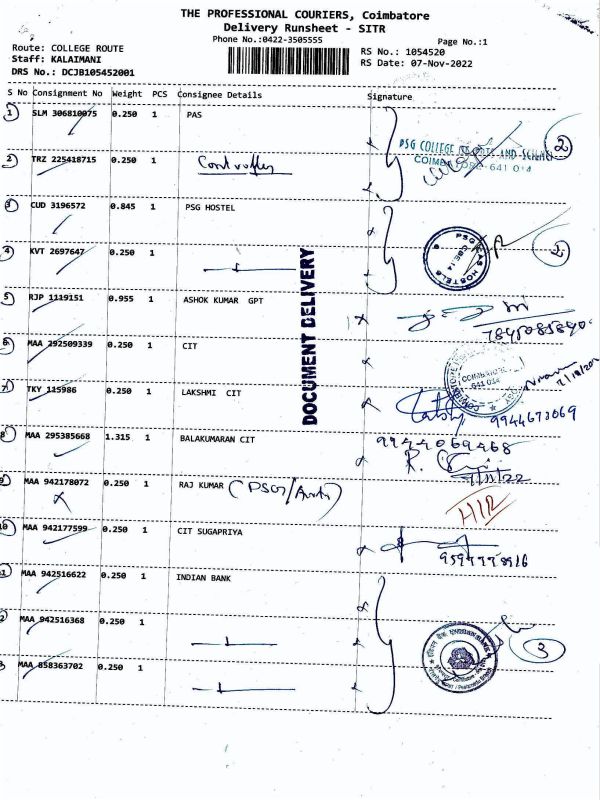 THE PROFESSIONAL COURIERS, Coimbatore
Delivery Runsheet - SITR
Phone No.:0422-3505555
Page No.:1
Route: COLLEGE ROUTE
RS No.: 1054520
Staff: KALAIMANI
RS Date: 07-Nov-2022
DRS No.: DCJB105452001
S No Consignment No Weight PCS Consignee Details Signature
1 SLM 306810075 0.250 1 PAS
PSG COLLEGE OF ARTS AND SCIENCE
COIMBATORE-641 014
2
2 TRZ 225418715 0.250 1 Controller
3 CUD 3196572 0.845 1 PSG HOSTEL
PSG CAS HOSTELS
CBE-14
2
4 KVT 2697647 0.250 1
DOCUMENT DELIVERY
5 RJP 1119151 0.955 1 ASHOK KUMAR GPT
6 MAA 292509339 0.250 1 CIT
COIMBATORE
641 014
7 TKY 115986 0.250 1 LAKSHMI CIT
9944673069
8 MAA 295385668 1.315 1 BALAKUMARAN CIT
9944069468
9 MAA 942178072 0.250 1 RAJ KUMAR
10 MAA 942177599 0.250 1 CIT SUGAPRIYA
1 MAA 942516622 0.250 1 INDIAN BANK
2 MAA 942516368 0.250 1
3
3 MAA 858363702 0.250 1